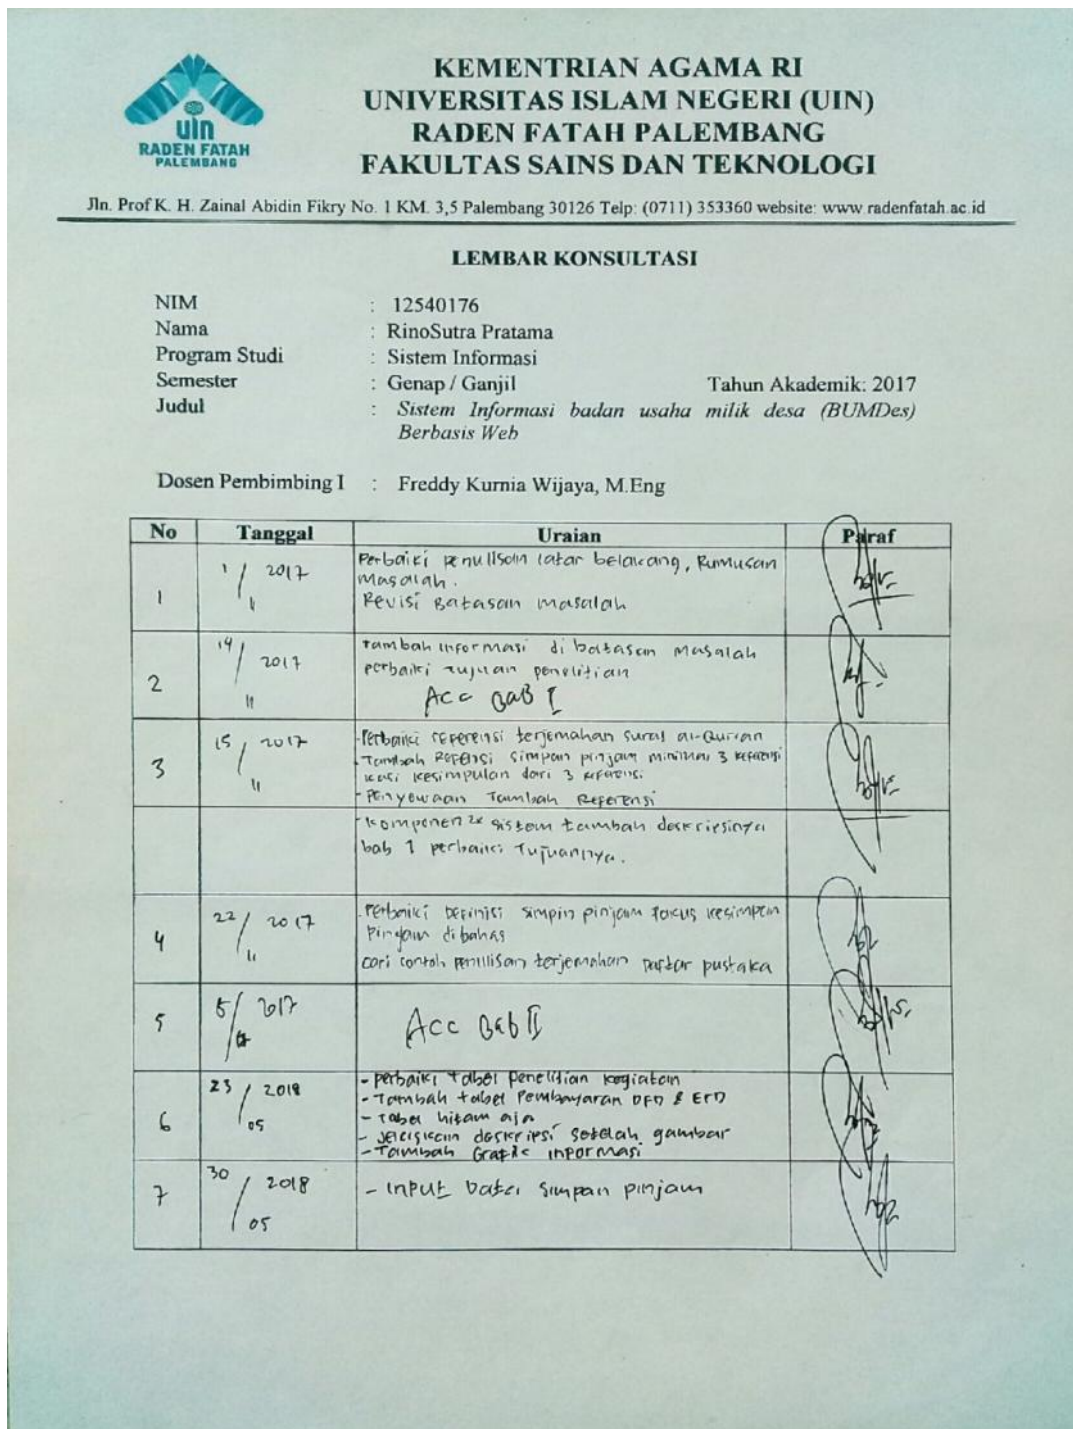 uin
RADEN FATAH
PALEMBANG
KEMENTRIAN AGAMA RI
UNIVERSITAS ISLAM NEGERI (UIN)
RADEN FATAH PALEMBANG
FAKULTAS SAINS DAN TEKNOLOGI
Jln. Prof K. H. Zainal Abidin Fikry No. 1 KM. 3,5 Palembang 30126 Telp: (0711) 353360 website: www radenfatah.ac.id
LEMBAR KONSULTASI
NIM : 12540176
Nama : RinoSutra Pratama
Program Studi : Sistem Informasi
Semester : Genap / Ganjil Tahun Akademik: 2017
Judul : Sistem Informasi badan usaha milik desa (BUMDes)
Berbasis Web
Dosen Pembimbing I : Freddy Kurnia Wijaya, M.Eng
No Tanggal Uraian Paraf
1 1/11 2017 Perbaiki penulisan latar belakang, Rumusan
Masalah.
Revisi Batasan masalah
2 14/11 2017 tambah informasi di batasan masalah
perbaiki tujuan penelitian
Acc Bab I
3 15/11 2017 -Perbaiki referensi terjemahan surat al-Qur'an
-Tambah Refensi simpan pinjam minimal 3 referensi
kasi kesimpulan dari 3 referensi
- Penyewaan Tambah Referensi
- Komponen2x sistem tambah deskripsinya
bab 1 perbaiki Tujuannya.
4 22/11 2017 - Perbaiki definisi simpin pinjam fokus kesimpan
Pinjam dibahas
cari contoh penulisan terjemahan Daftar pustaka
5 2017 Acc Bab II
6 23/05 2018 - perbaiki tabel penelitian kegiatan
- Tambah tabel Pembayaran DFD & ERD
- Tabel hitam aja
- Jelaskan deskripsi setelah gambar
- Tambah Grafik informasi
7 30/05 2018 - INPUT Data simpan pinjam